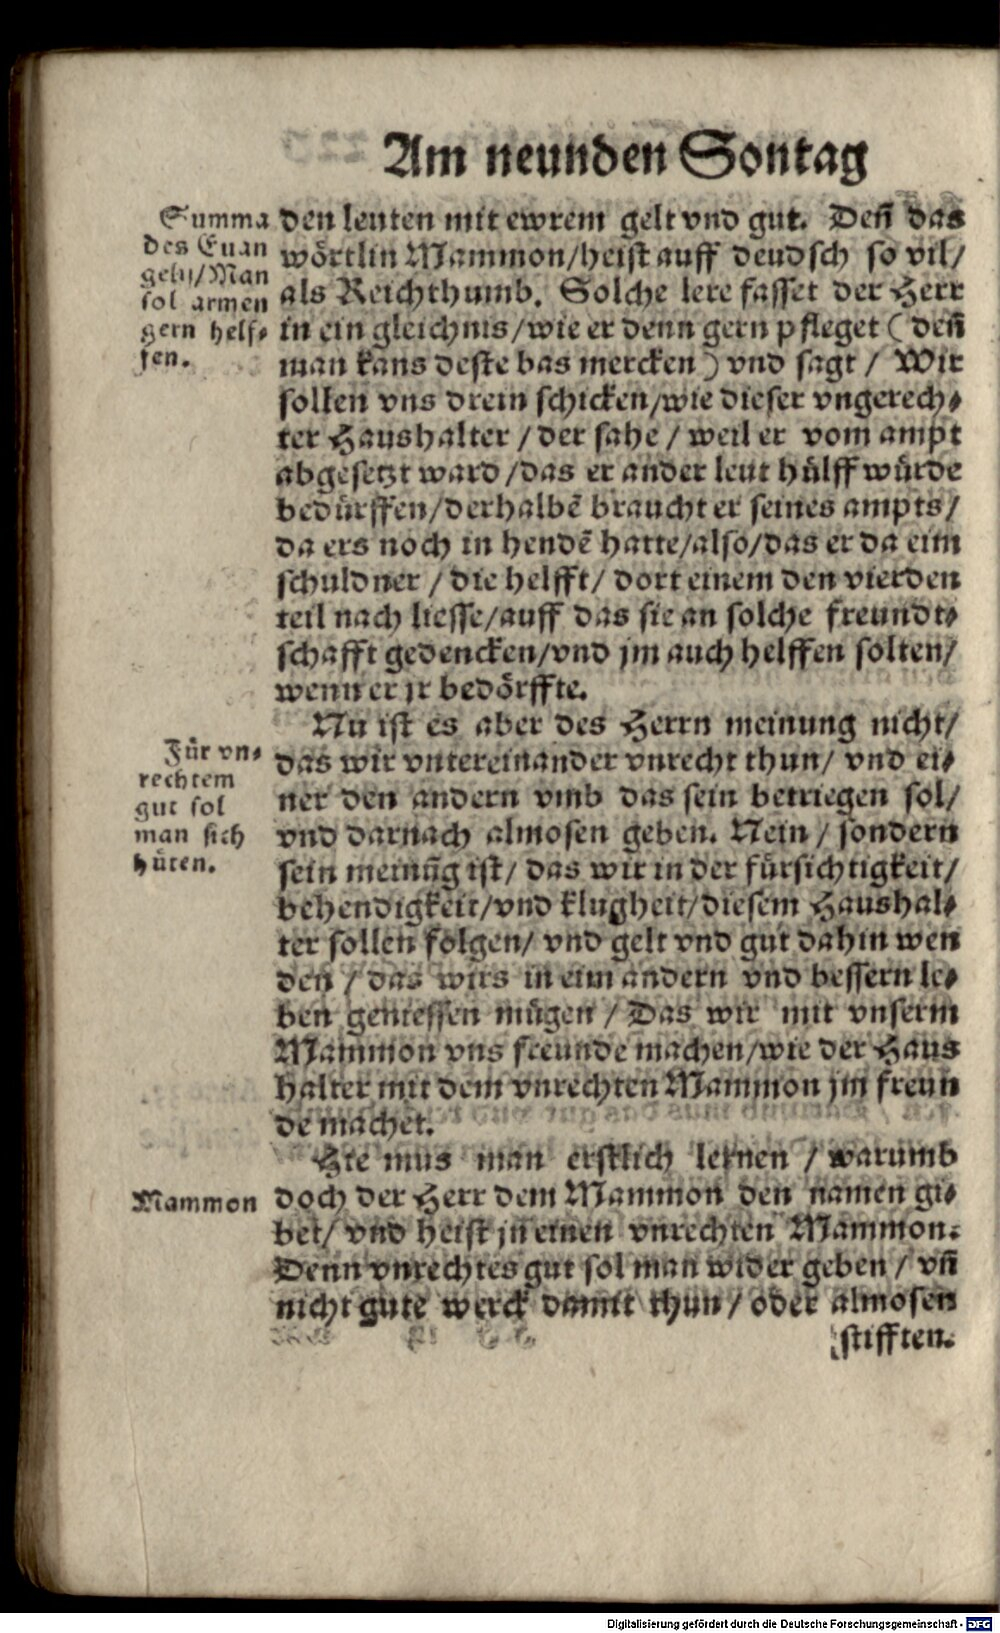 Am neunden Sontag
Summa
des Euan
gelij/Man
sol armen
gern helf⸗
fen.
den leuten mit ewrem gelt vnd gut. Deñ das
wörtlin Mammon/heist auff deudsch so vil/
als Reichthumb. Solche lere fasset der Herr
in ein gleichnis/wie er denn gern pfleget (deñ
man kans deste bas mercken) vnd sagt / Wir
sollen vns drein schicken/wie dieser vngerech⸗
ter Haushalter / der sahe / weil er vom ampt
abgesetzt ward /das er ander leut hülff würde
bedürffen/derhalbẽ braucht er seines ampts/
da ers noch in hendẽ hatte/also/das er da eim
schuldner / die helfft/ dort einem den vierden
teil nach liesse/auff das sie an solche freundt⸗
schafft gedencken/vnd jm auch helffen solten/
wenn er jr bedörffte.
Für vn⸗
rechtem
gut sol
man sich
hüten.
Nu ist es aber des Herrn meinung nicht/
das wir vntereinander vnrecht thun/ vnd ei⸗
ner den andern vmb das sein betriegen sol/
vnd darnach almosen geben. Nein / sondern
sein meinũg ist/ das wir in der fürsichtigkeit/
behendigkeit/vnd klugheit/diesem Haushal⸗
ter sollen folgen/ vnd gelt vnd gut dahin wen
den / das wirs in eim andern vnd bessern le⸗
ben geniessen mügen / Das wir mit vnserm
Mammon vns freunde machen/wie der Haus
halter mit dem vnrechten Mammon jm freun
de machet.
Mammon
Hie mus man erstlich lernen / warumb
doch der Herr dem Mammon den namen gi⸗
bet/ vnd heist jn einen vnrechten Mammon.
Denn vnrechtes gut sol man wider geben / vñ
nicht gute werck damit thun / oder almosen
stifften.
Digitalisierung gefördert durch die Deutsche Forschungsgemeinschaft - DFG